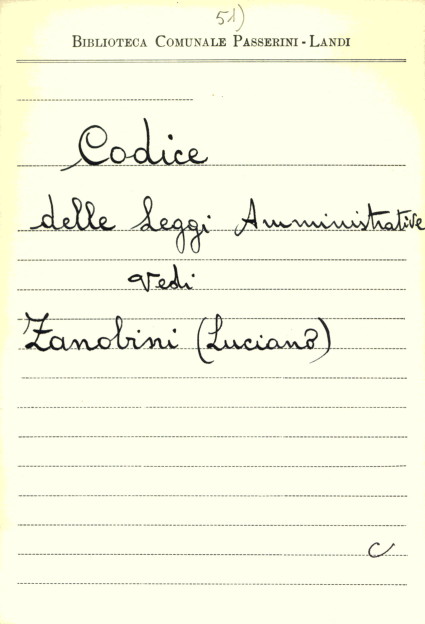 51)
BIBLIOTECA COMUNALE PASSERINI - LANDI
Codice
delle Leggi Amministrative
Vedi
Zanobini (Luciano)
C